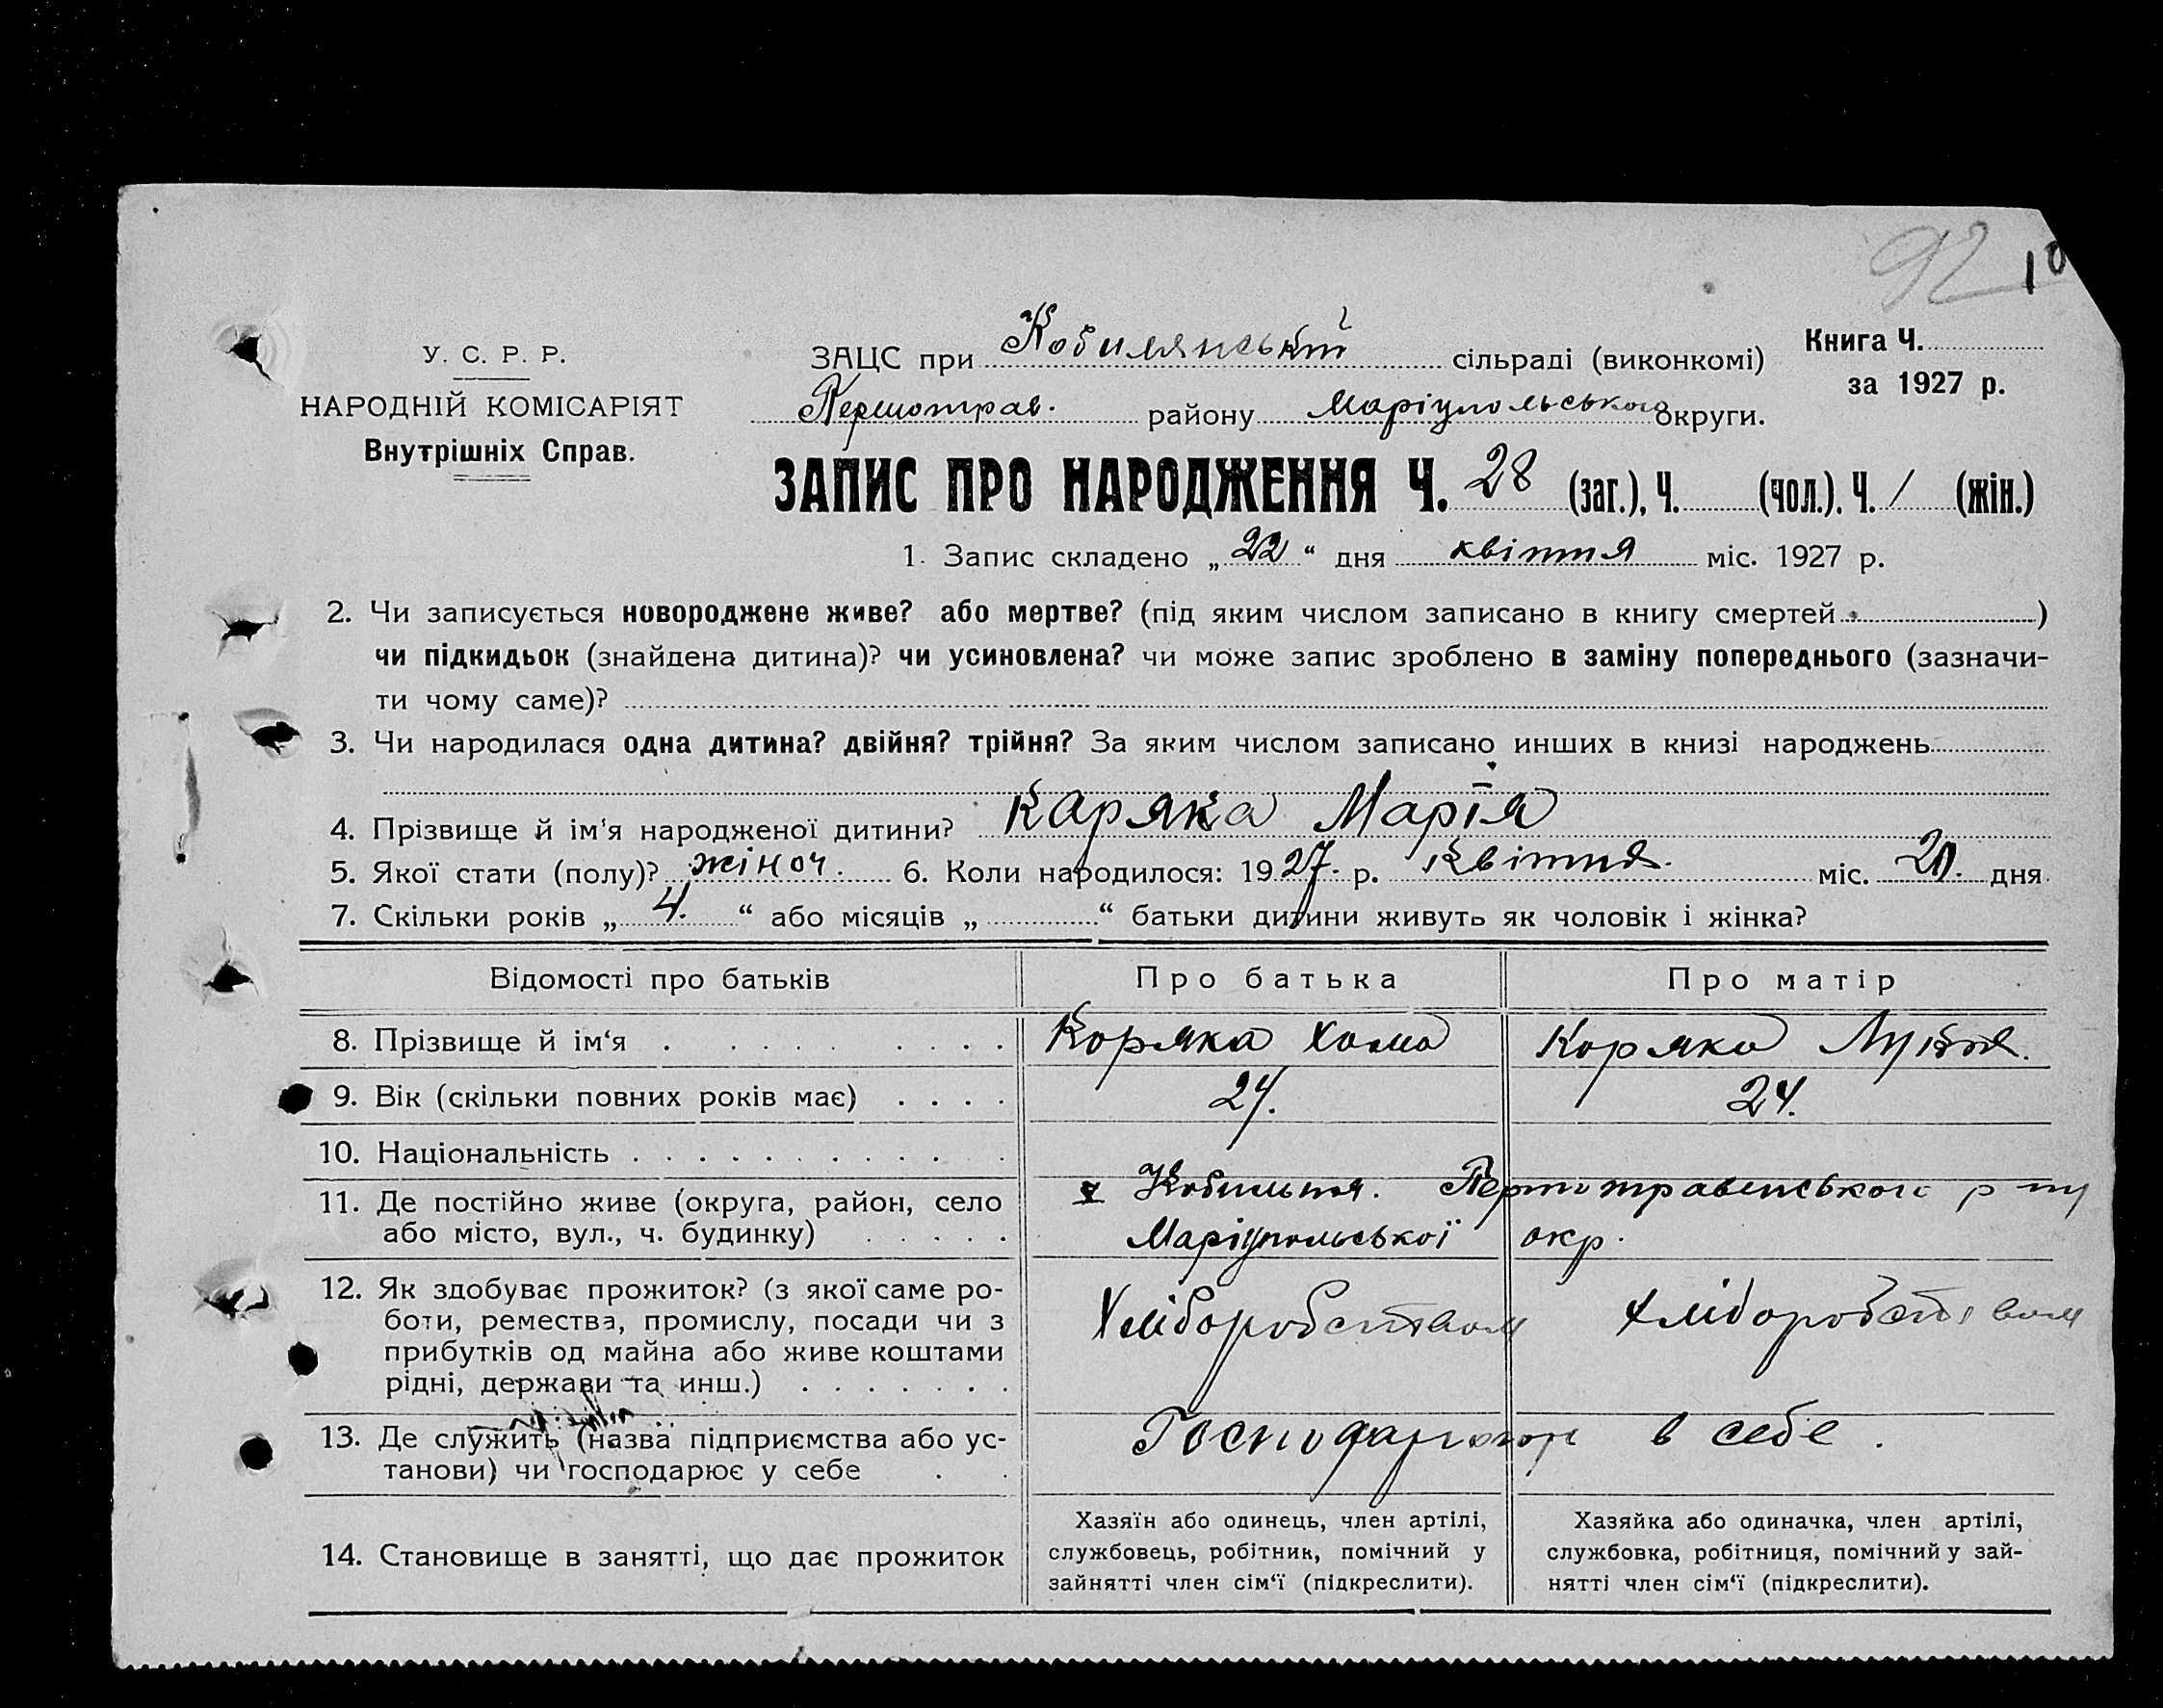 92
10
У. С. Р. Р.
НАРОДНІЙ КОМІСАРІЯТ
Внутрішніх Справ.
ЗАЦС при Кобилянській сільраді (виконкомі)
Першотрав. району Маріупольського округи.
Книга Ч.
за 1927 р.
ЗАПИС ПРО НАРОДЖЕННЯ Ч. 28 (заг.), Ч. (чол.). Ч. / (жін.)
1. Запис складено „22“ дня квітня міс. 1927 р.
2. Чи записується новороджене живе? або мертве? (під яким числом записано в книгу смертей )
чи підкидьок (знайдена дитина)? чи усиновлена? чи може запис зроблено в заміну попереднього (зазначи-
ти чому саме)?
3. Чи народилася одна дитина? двійня? трійня? За яким числом записано инших в книзі народжень
4. Прізвище й ім'я народженої дитини? Каряка Марія
5. Якої стати (полу)? жіноч. 6. Коли народилося: 1927. р. Квітня. міс. 20. дня
7. Скільки років „4.“ або місяців „ “ батьки дитини живуть як чоловік і жінка?
Відомості про батьків Про батька Про матір
8. Прізвище й ім‘я Коряка Хома Коряка
9. Вік (скільки повних років має) 24. 24.
10. Національність
11. Де постійно живе (округа, район, село Кобильня. Першотравенського р-ну
або місто, вул., ч. будинку) Маріупольської окр.
12. Як здобуває прожиток? (з якої саме ро-
боти, ремества, промислу, посади чи з Хліборобством Хліборобством
прибутків од майна або живе коштами
рідні, держави та инш.)
13. Де служить (назва підприємства або ус- Господарюють в себе.
танови) чи господарює у себе
14. Становище в занятті, що дає прожиток
Хазяїн або одинець, член артілі,
службовець, робітник, помічний у
зайнятті член сім‘ї (підкреслити).
Хазяйка або одиначка, член артілі,
службовка, робітниця, помічний у зай-
нятті член сім‘ї (підкреслити).